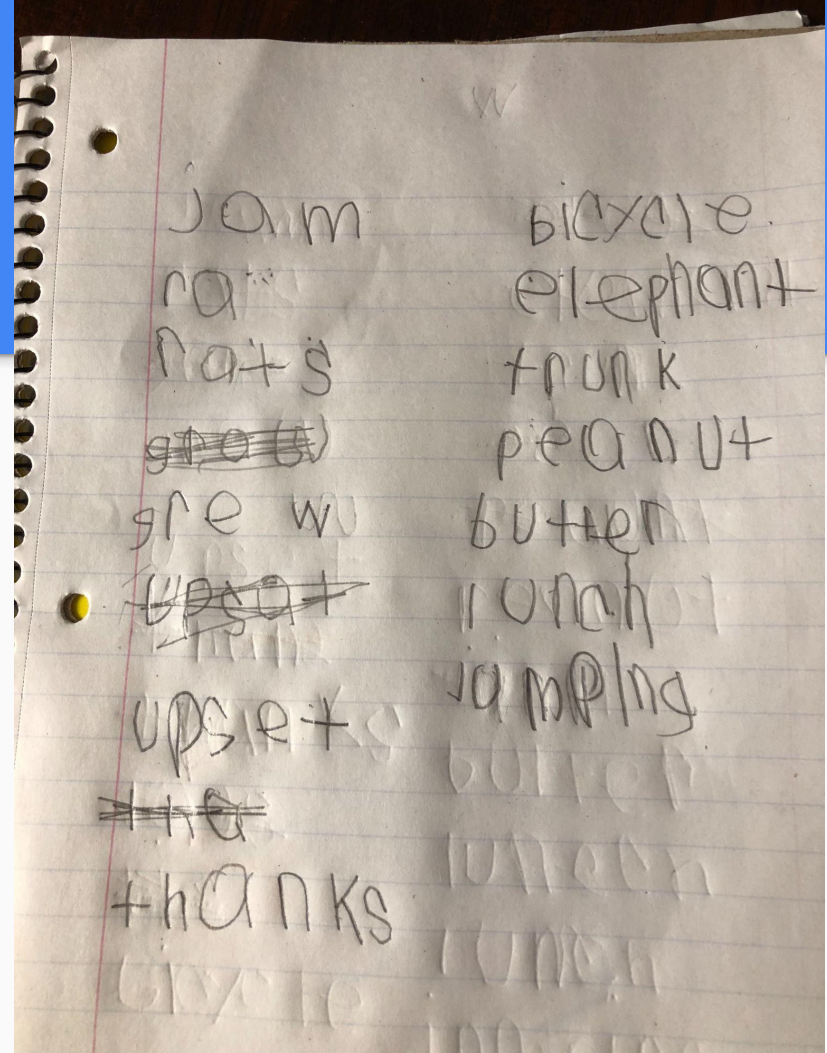 W
jam
ra
hats
grew
upset
thanks
bicycle.
elephant
trunk
peanut
butter
lunch
jamping